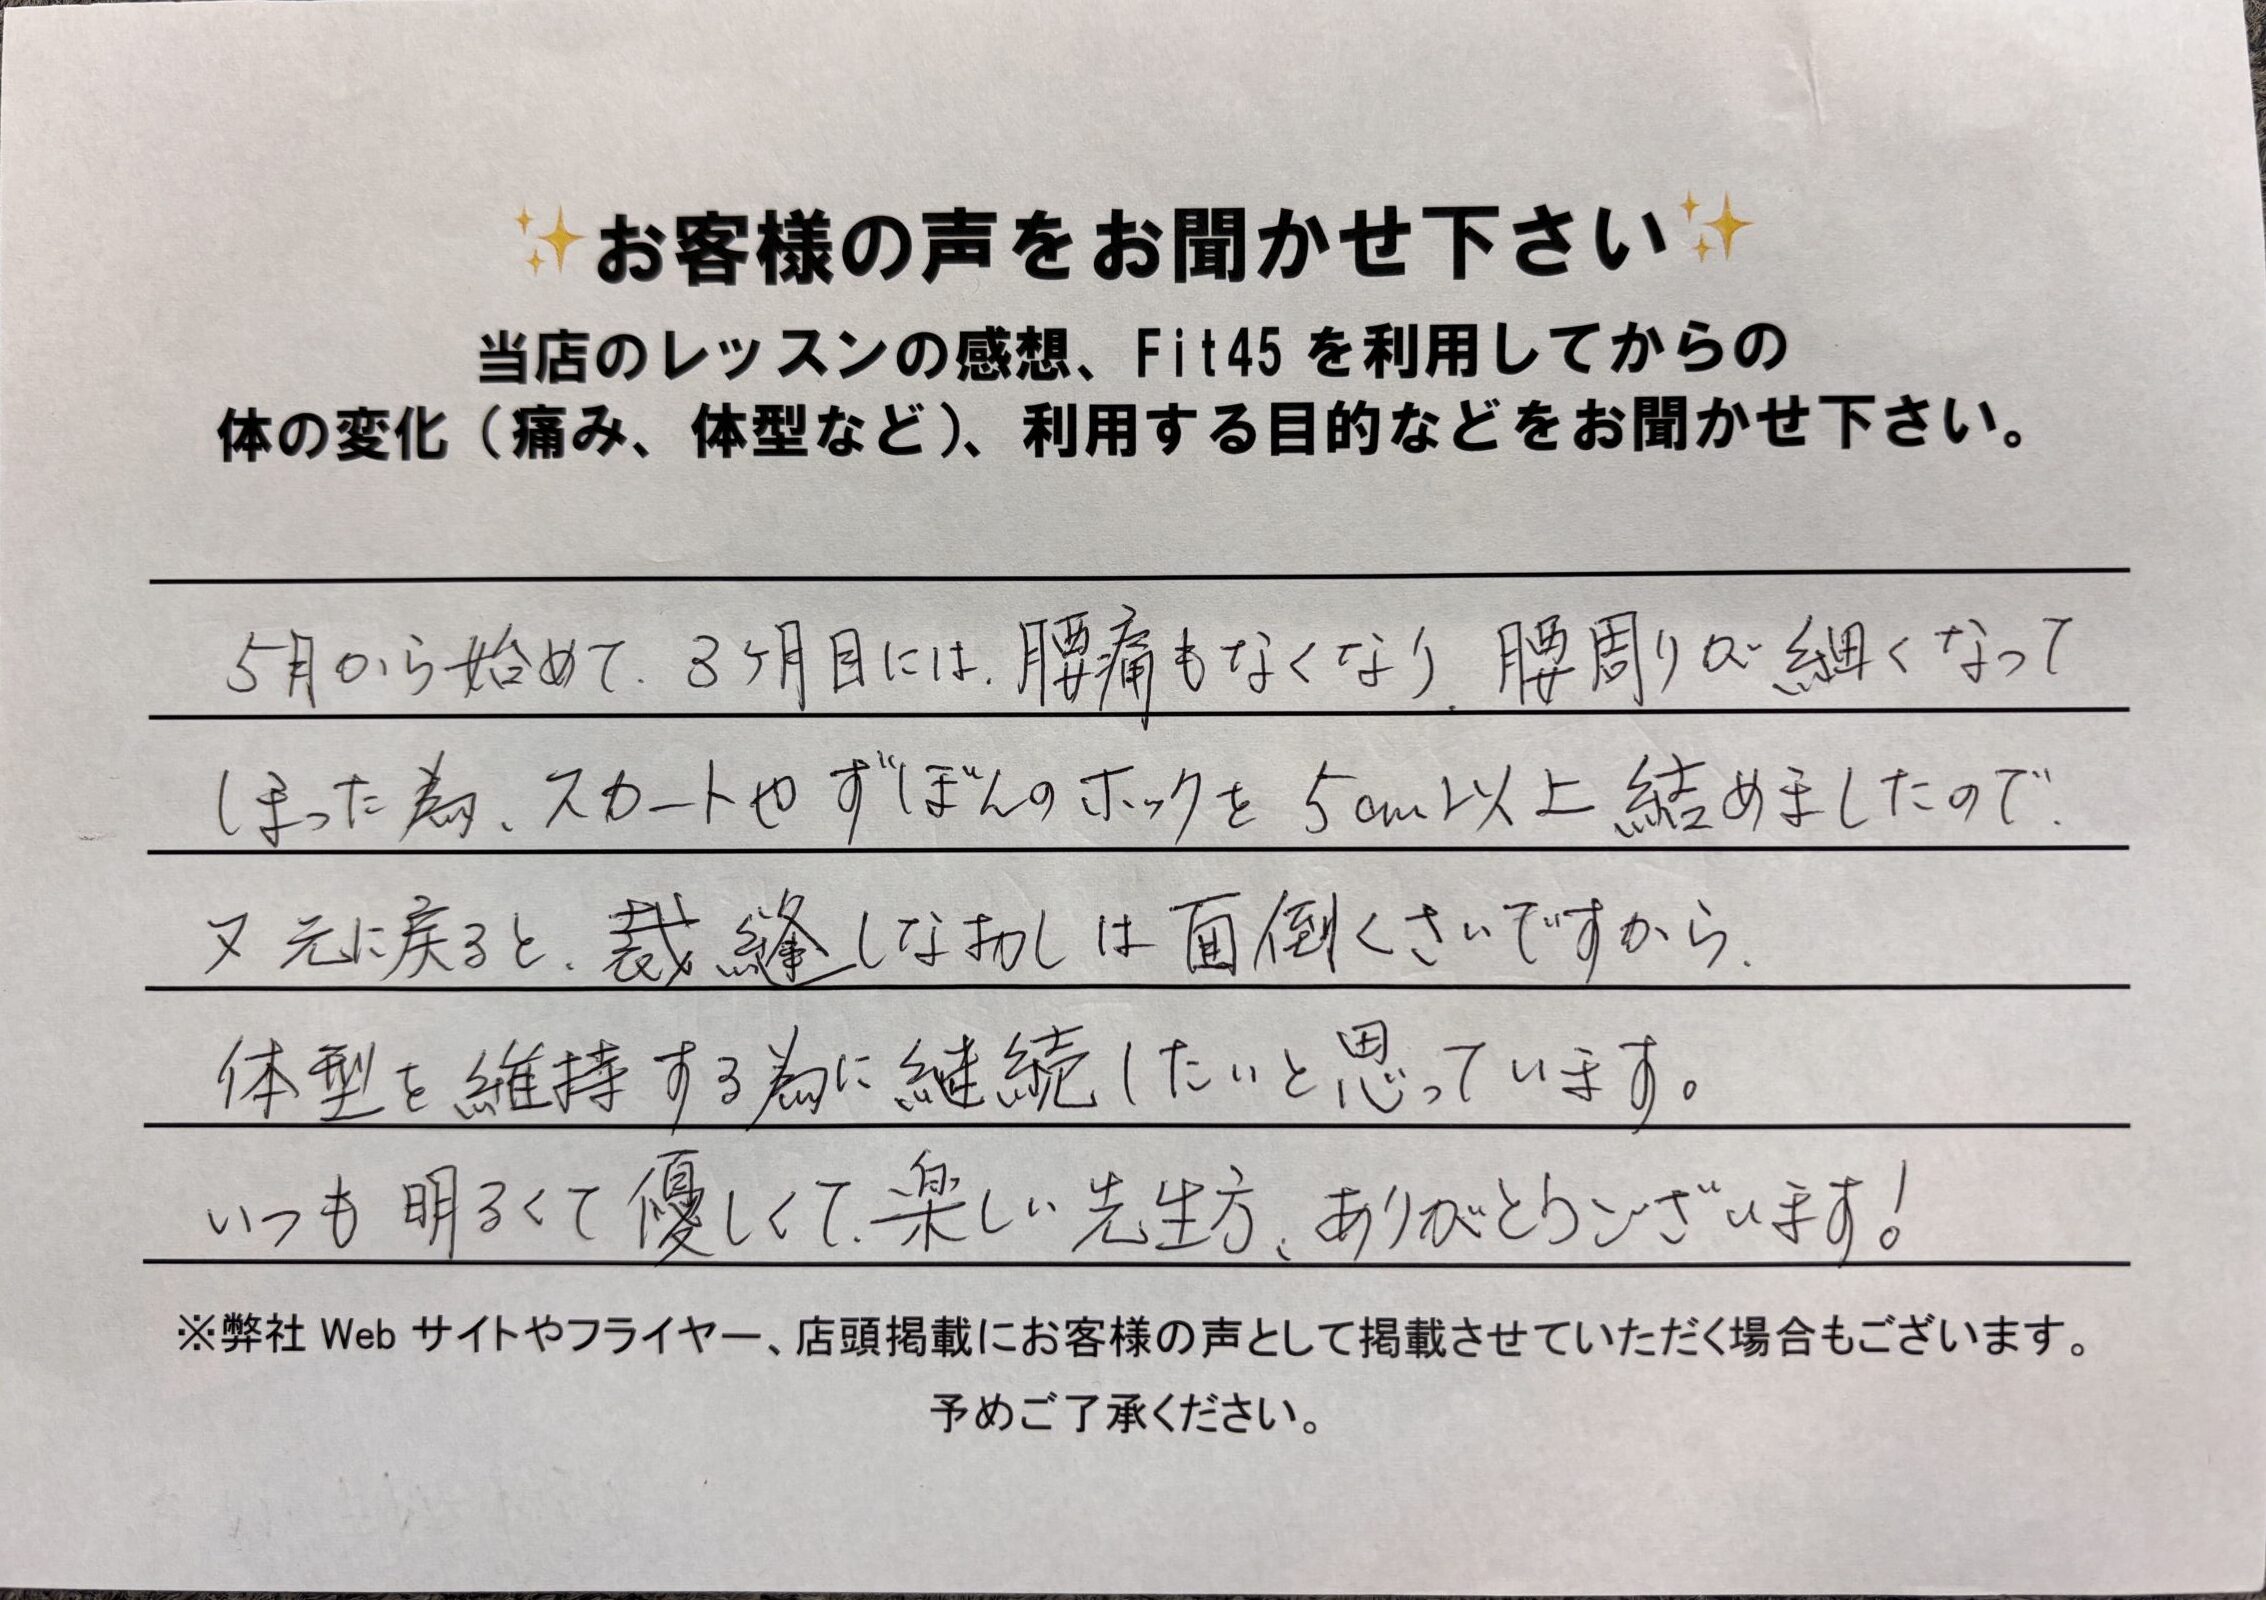 ✨お客様の声をお聞かせ下さい✨
当店のレッスンの感想、Fit45を利用してからの
体の変化（痛み、体型など）、利用する目的などをお聞かせ下さい。
5月から始めて、3ヶ月目には、腰痛もなくなり、腰周りが細くなって
しまった為、スカートやずぼんのホックを5cm以上結めましたので、
又元に戻ると、裁縫しなおしは面倒くさいですから、
体型を維持する為に継続したいと思っています。
いつも明るくて優しくて、楽しい先生方、ありがとうございます！
※弊社Webサイトやフライヤー、店頭掲載にお客様の声として掲載させていただく場合もございます。
予めご了承ください。